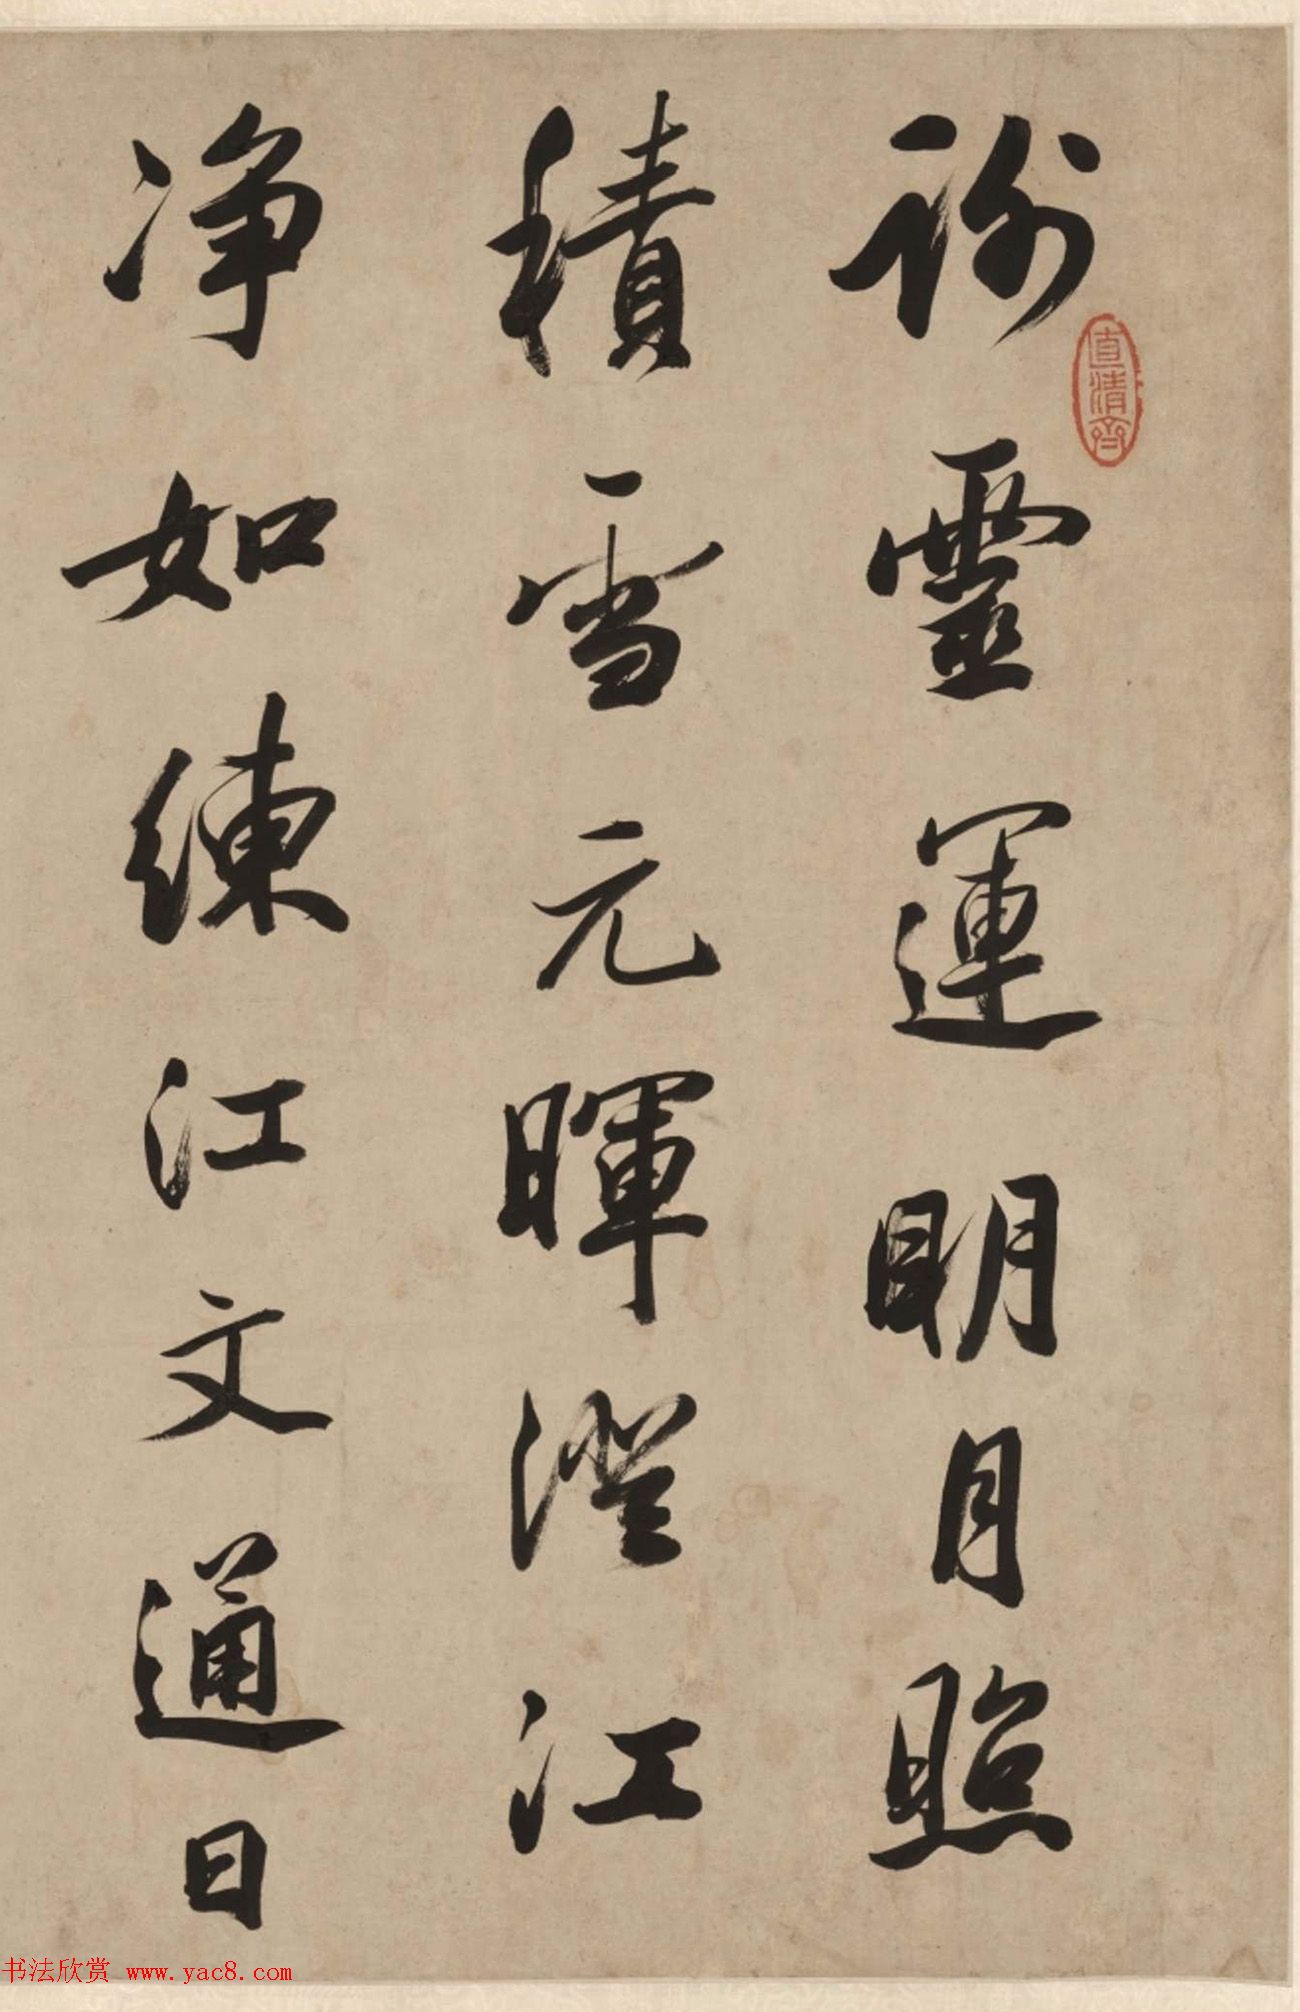 謝靈運明月照
積雪元暉澄江
净如練江文通日
直清齋
书法欣赏 www.yac8.com